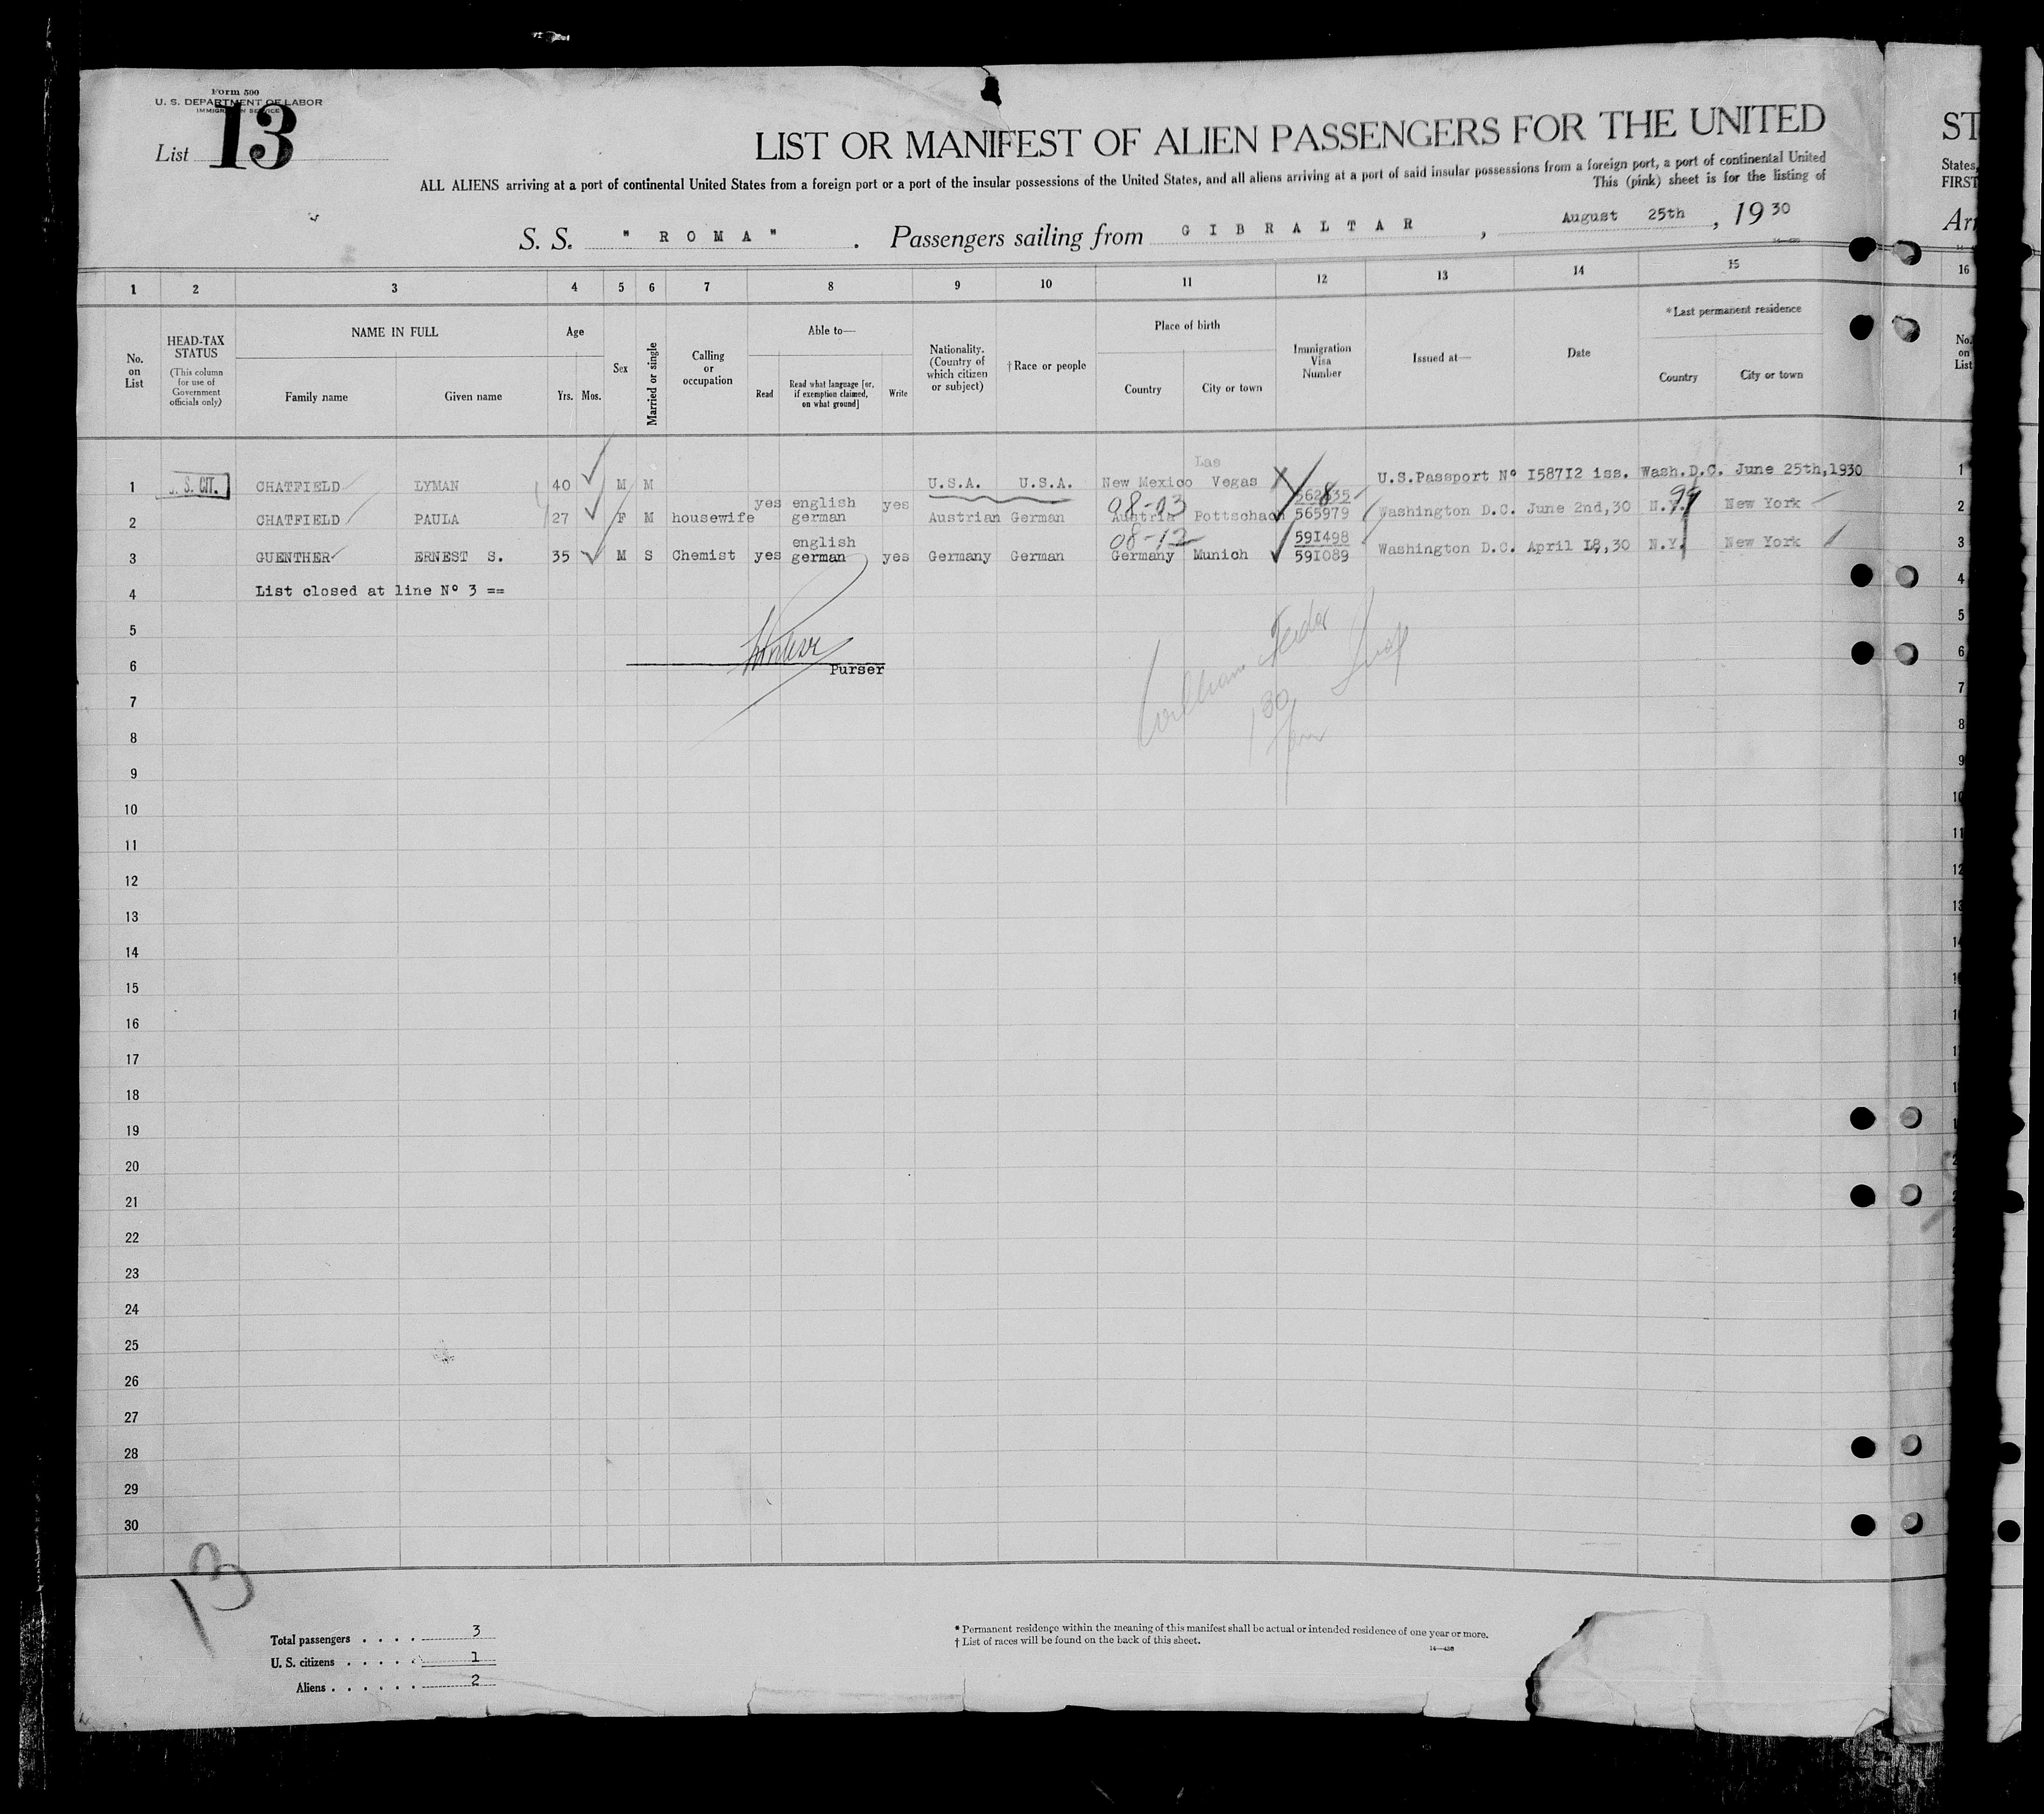 Form 500
U. S. DEPARTMENT OF LABOR
IMMIGRATION SERVICE
List 13
LIST OR MANIFEST OF ALIEN PASSENGERS FOR THE UNITED
ST
ALL ALIENS arriving at a port of continental United States from a foreign port or a port of the insular possessions of the United States, and all aliens arriving at a port of said insular possessions from a foreign port, a port of continental United
States,
This (pink) sheet is for the listing of
FIRST
S. S. " R O M A " . Passengers sailing from G I B R A L T A R , August 25th , 19 30
Arr
1 2 3 4 5 6 7 8 9 10 11 12 13 14 15 16
No. on List
HEAD-TAX STATUS
(This column for use of Government officials only)
NAME IN FULL
Family name Given name
Age
Yrs. Mos.
Sex
Married or single
Calling or occupation
Able to—
Read
Read what language [or, if exemption claimed, on what ground]
Write
Nationality. (Country of which citizen or subject)
†Race or people
Place of birth
Country City or town
Immigration Visa Number
Issued at—
Date
*Last permanent residence
Country City or town
No. on List
Las
1 U. S. CIT. CHATFIELD LYMAN 40 M M U.S.A. U.S.A. New Mexico Vegas U.S.Passport Nº I587I2 iss. Wash.D.C. June 25th,1930 1
yes english yes 08-03 99
2 CHATFIELD PAULA 27 F M housewife german Austrian German Austria Pottschach 565979 Washington D.C. June 2nd,30 N.Y. New York 2
english 08-12 59I498
3 GUENTHER ERNEST S. 35 M S Chemist yes german yes Germany German Germany Munich 59I089 Washington D.C. April I8,30 N.Y. New York 3
4 List closed at line Nº 3 == 4
5 5
6 Purser 6
William
1 30
7 7
8 8
9 9
10 10
11 11
12 12
13 13
14 14
15
16
17
18
19
20
21
22
23
24
25
26
27
28
29
30
13
Total passengers . . . . 3
U. S. citizens . . . . . 1
Aliens . . . . . . 2
* Permanent residence within the meaning of this manifest shall be actual or intended residence of one year or more.
† List of races will be found on the back of this sheet.